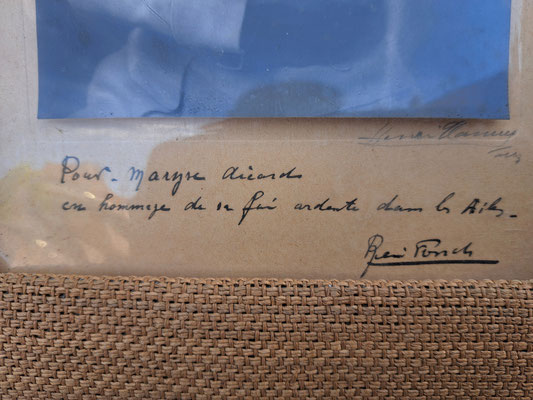 Pour - Maryse
en hommage de sa foi ardente dans les Ailes -
René Fonck